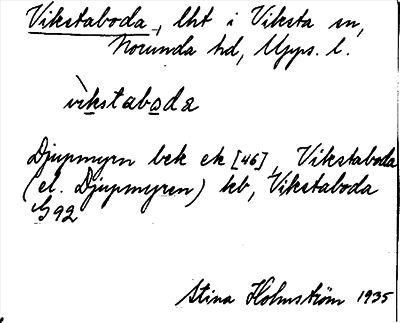 Vikstaboda, lht i Viksta sn,
Norunda hd, Upps. l.
vìkstaboda
Djupmyrn bek ek [46], Vikstaboda
(el. Djupmyren) kb, Vikstaboda
G92
Stina Holmström 1935